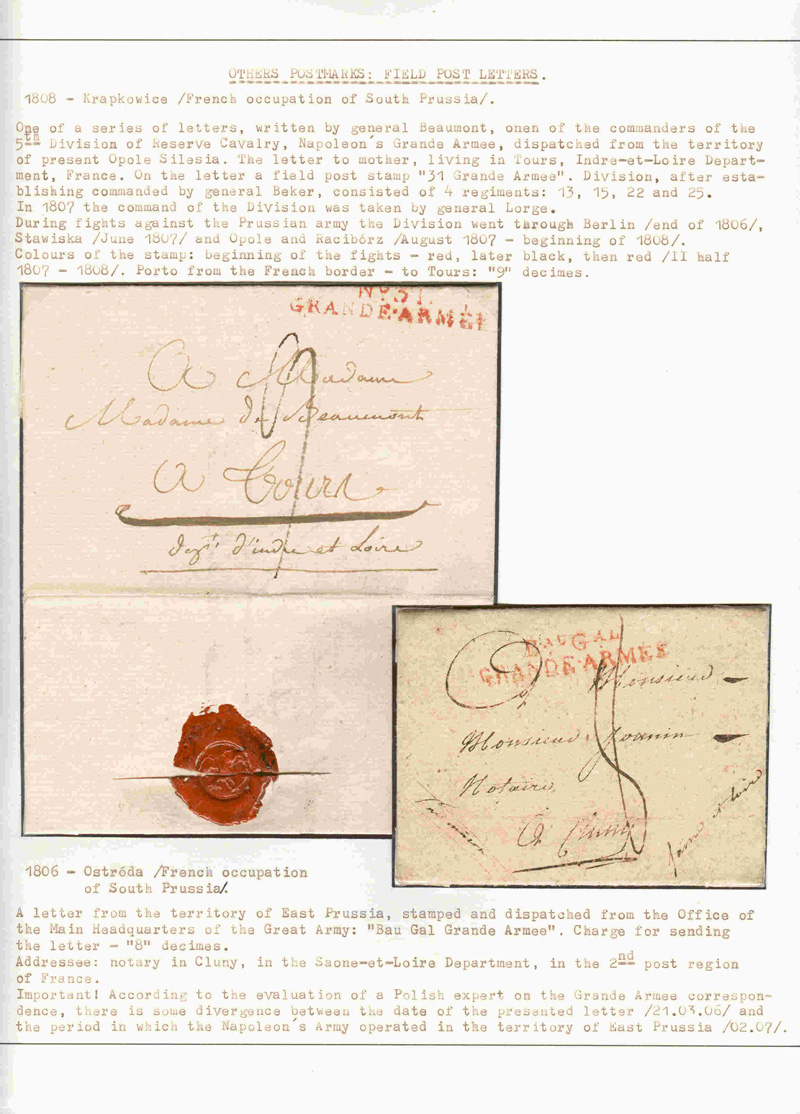 OTHERS POSTMARKS: FIELD POST LETTERS.
1808 - Krapkowice /French occupation of South Prussia/.
One of a series of letters, written by general Beaumont, onen of the commanders of the
5th Division of Reserve Cavalry, Napoleon´s Grande Armee, dispatched from the territory
of present Opole Silesia. The letter to mother, living in Tours, Indre-et-Loire Depart-
ment, France. On the letter a field post stamp "31 Grande Armee". Division, after esta-
blishing commanded by general Beker, consisted of 4 regiments: 13, 15, 22 and 25.
In 1807 the command of the Division was taken by general Lorge.
During fights against the Prussian army the Division went through Berlin /end of 1806/,
Stawiska /June 1807/ and Opole and Racibórz /August 1807 - beginning of 1808/.
Colours of the stamp: beginning of the fights - red, later black, then red /II half
1807 - 1808/. Porto from the French border - to Tours: "9" decimes.
No 31.
GRANDE·ARMÉE
A Madame
Madame de Beaumont
A Tours
dept. d'indre et Loire
9
Bau GAL
GRANDE·ARMÉE
A Monsieur
Monsieur Joanin
Notaire
A Cluny
Saone et loire
8
1806 - Ostróda /French occupation
of South Prussia/.
A letter from the territory of East Prussia, stamped and dispatched from the Office of
the Main Headquarters of the Great Army: "Bau Gal Grande Armee". Charge for sending
the letter - "8" decimes.
Addressee: notary in Cluny, in the Saone-et-Loire Department, in the 2nd post region
of France.
Important! According to the evaluation of a Polish expert on the Grande Armee correspon-
dence, there is some divergence between the date of the presented letter /21.03.06/ and
the period in which the Napoleon´s Army operated in the territory of East Prussia /02.07/.